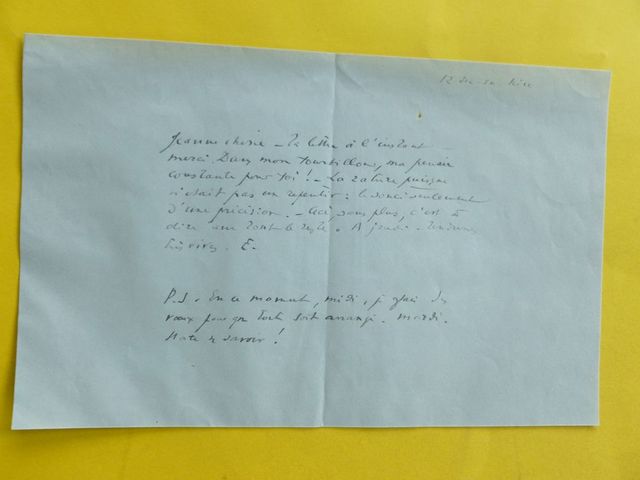 12 dec
Jeanne chérie - ta lettre à l'instant
merci. Dans mon tourbillon, ma pensée
constante pour toi ! - La rature
n'était pas un repentir : le souci seulement
d'une précision. - Ceci, sans plus, c'est à
dire tout le reste. A jeudi. Tendresses
très vives. E.
P.S. En ce moment, midi, je fais des
vœux pour que tout soit arrangé. mardi.
Hâte de savoir !